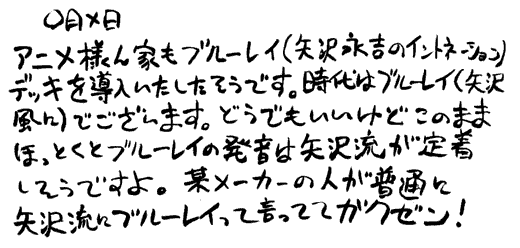 〇月×日
アニメ様ん家もブルーレイ(矢沢永吉のイントネーション)
デッキを導入いたしたそうです。時代はブルーレイ(矢沢
風に)でございます。どうでもいいけどこのまま
ほっとくとブルーレイの発音は矢沢流が定着
しそうですよ。某メーカーの人が普通に
矢沢流にブルーレイって言っててガクゼン!